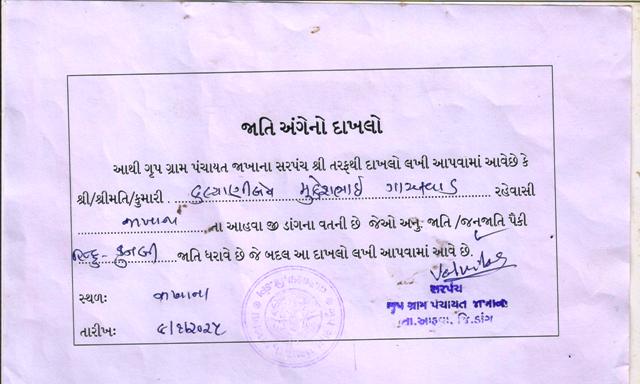 જાતિ અંગેનો દાખલો
આથી ગૃપ ગ્રામ પંચાયત જાખાના સરપંચ શ્રી તરફથી દાખલો લખી આપવામાં આવેછે કે
શ્રી/શ્રીમતિ/કુમારી . કલ્યાણીબેન મુકેશભાઈ ગાયકવાડ રહેવાસી
જાખાના ના આહવા જી ડાંગના વતની છે જેઓ અનુ. જાતિ /જનજાતિ પૈકી
હિન્દુ - કુનબી જાતિ ધરાવે છે જે બદલ આ દાખલો લખી આપવામાં આવે છે.
સ્થળઃ જાખાના
સરપંચ
ગૃપ ગ્રામ પંચાયત જાખાના
તા.આહવા, જિ.ડાંગ
તારીખઃ